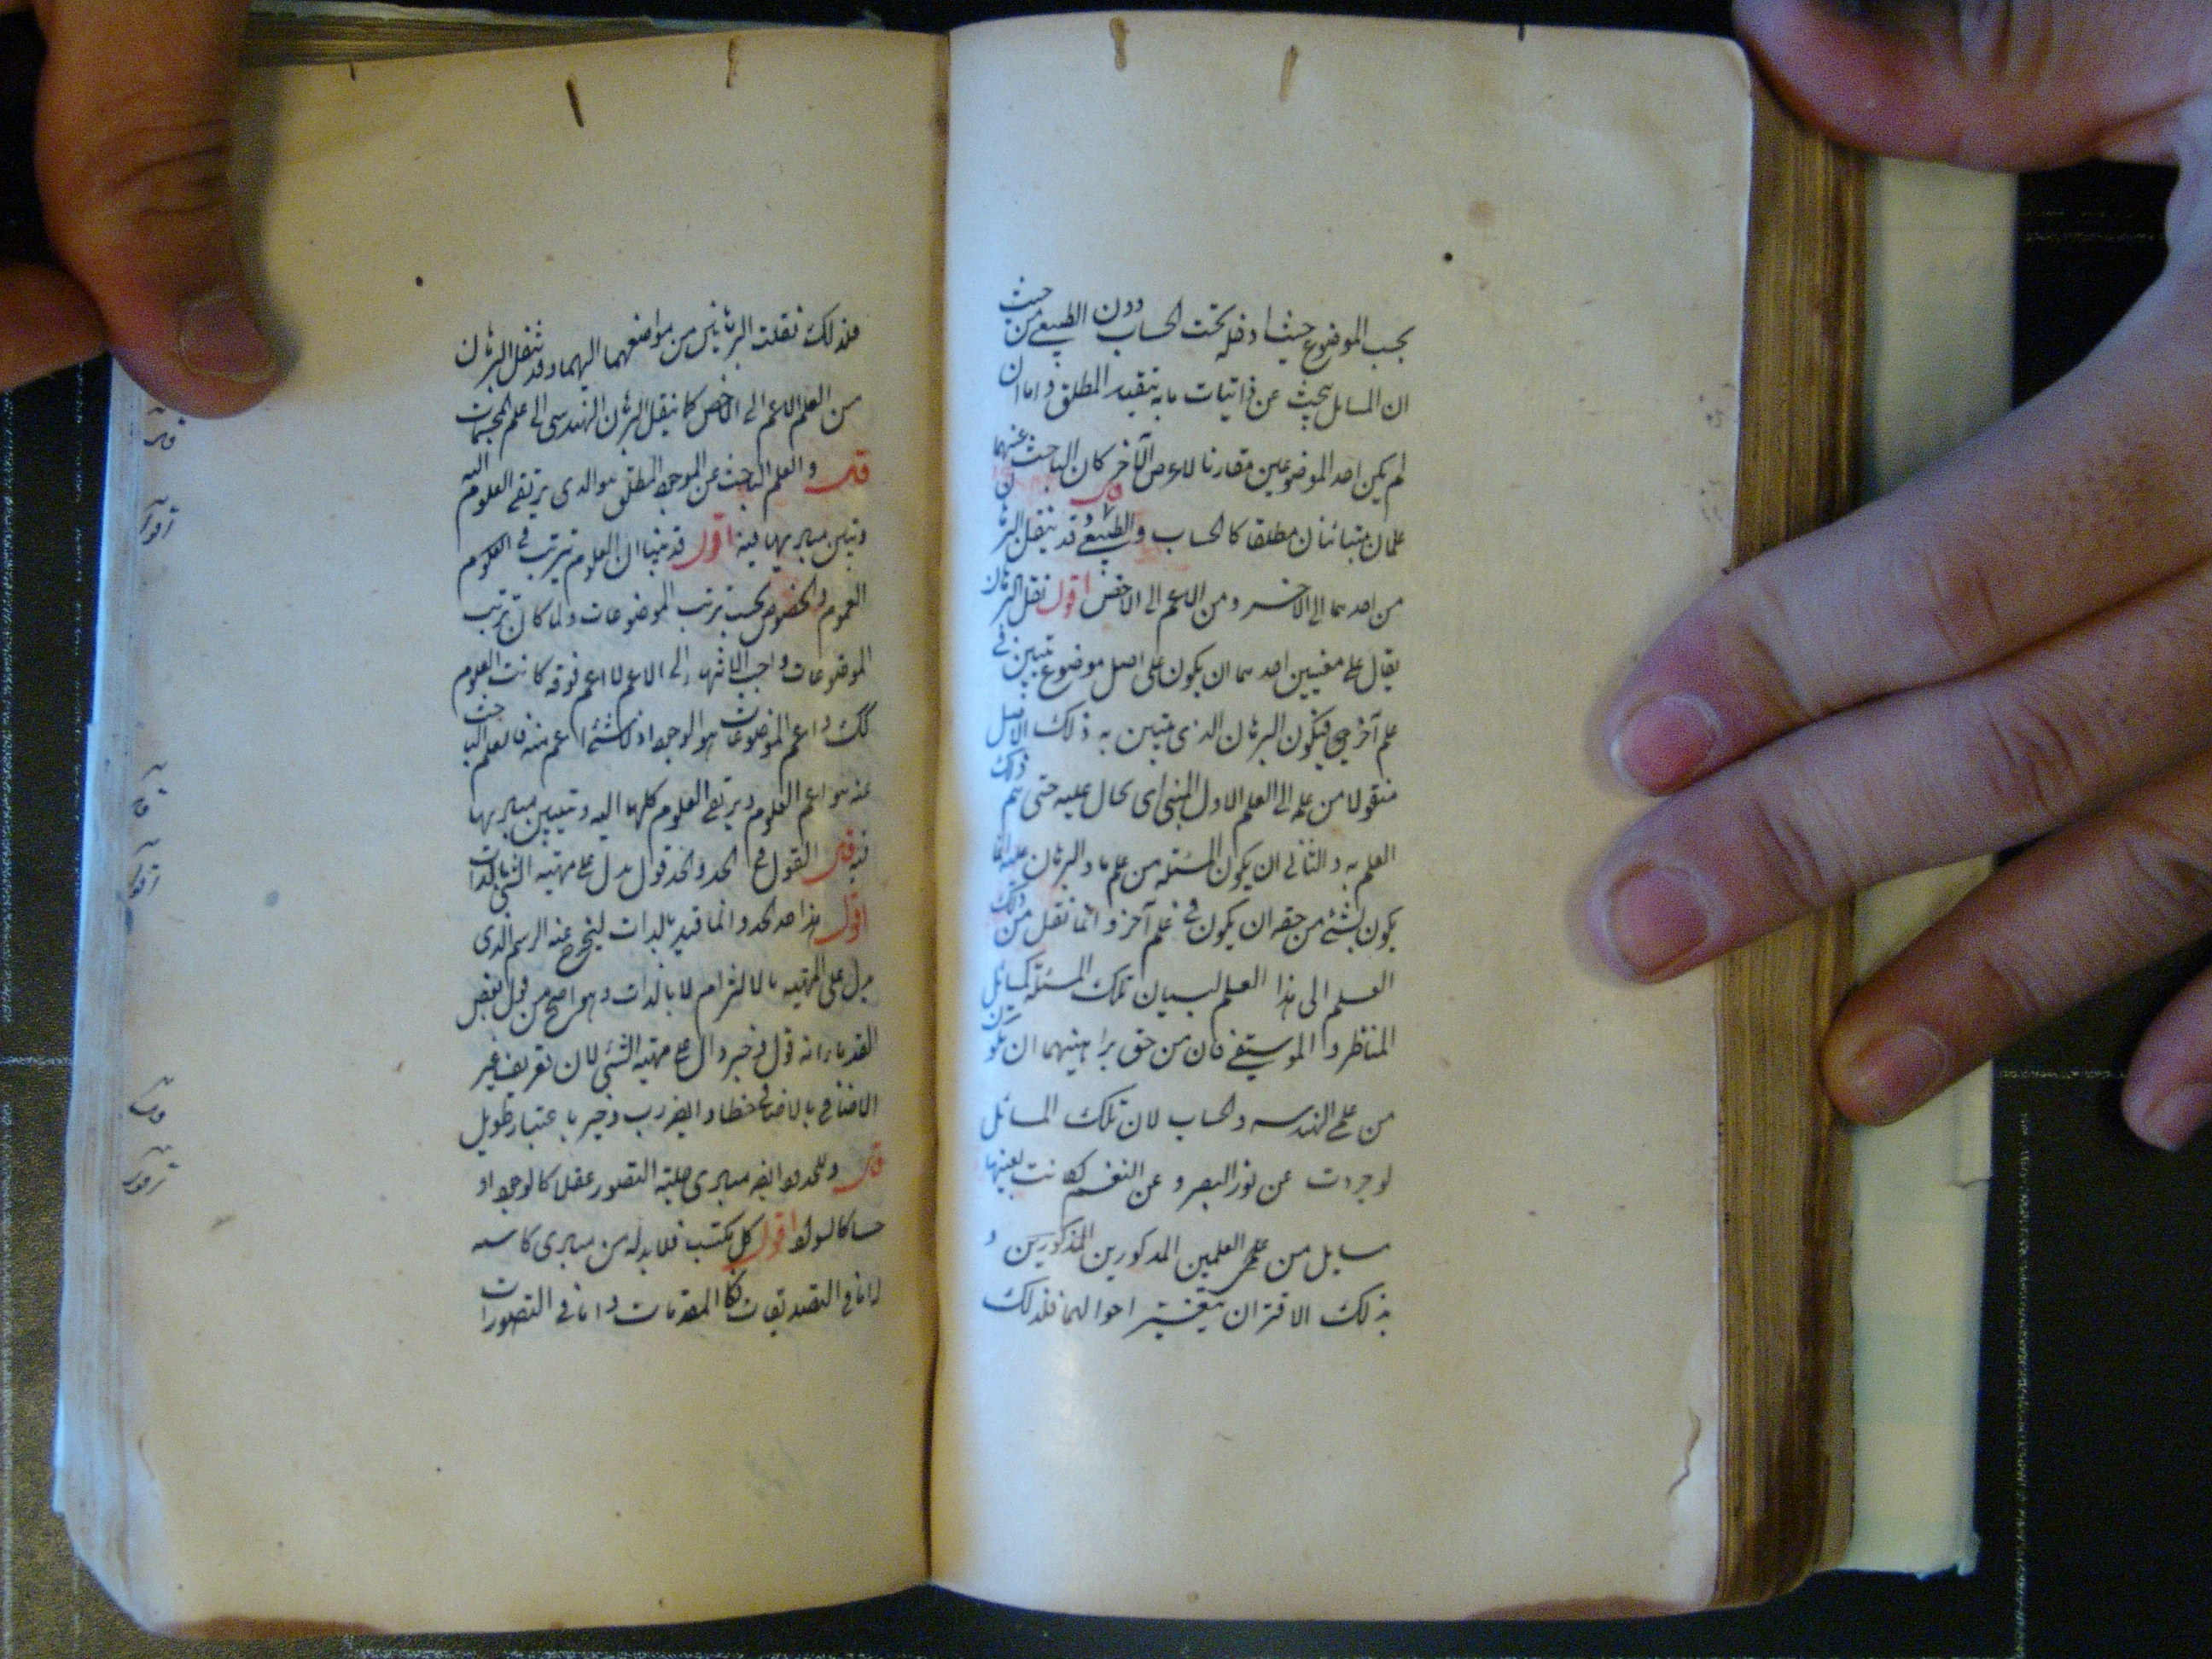 بحسب الموضوع حيث ادخله تحت الحساب دون الطبيعي من حيث
ان المسايل يبحث عن ذاتيات ما به تقيد المطلق واما ان
لم يكن احد الموضوعين مقارنا لاعرض الآخر كان الباحث عنهما
علمان متبائنان مطلقا كالحساب والطبيعي قال وقد ينقل البرهان
من احدهما الى الاخر ومن الاعم الى الاخص اقول نقل البرهان
يقال على معنيين احدهما ان يكون على اصل موضوع تبين في
علم آخر فيكون البرهان الذي يتبين به ذلك الاصل
منقولا من علمه الى العلم الاول المبني اى يحال عليه حتى يتم ذلك
العلم به والثاني ان يكون المسئلة من علم ما والبرهان عليه انما
يكون بشئ من حقه ان يكون في علم آخر وانما نقل من ذلك
العلم الى هذا العلم لبيان تلك المسئلة كمسائل
المناظر والموسيقى فان من حق براهينهما ان تكون
من علم الهندسه والحساب لان تلك المسائل
لو جردت عن نور البصر وعن النغم لكانت بعينها
مسايل من علمى العلمين المذكورين المذكورين و
بذلك الاقتران يتغير احوالهما فلذلك
فلذلك نقلت البرهانين من مواضعهما اليهما وقد ينقل البرهان
من العلم الاعم الى الاخص كما ينقل البرهان الهندسى الى علم المجسمات
قال والعلم الباحث عن الموجود المطلق هو الذى يرتقى العلوم اليه
وتبين مباديها فيه اقول قد بينا ان العلوم تترتب في العلوم
العموم والخصوص بحسب ترتب الموضوعات ولما كان ترتب
الموضوعات واجب الانتهاء الى الاعم لا اعم فوقه كانت العلوم
كك واعم الموضوعات هو الموجود اذ لا شئ اعم منه فالعلم الباحث
عنه هو اعم العلوم ويرتقى العلوم كلها اليه وتتبين مباديها
فيه قال القول في الحد والحد قول يدل على مهية الشئ بالذات
اقول هذا حد الحد وانما قيد بالذات ليخرج عنه الرسم الذى
يدل على المهيه بالالتزام لا بالذات وهو اصح من قول بعض
القدماء انه قول وخبر دال على مهية الشئ لان تعريف غير
الاضافي بالاضافي خطا وايضا رب وخبر باعتبار طويل
قال وللحدود ايضا مبادى جلية التصور عقلا كالوجود او
حسا كالسواد اقول كل مكتسب فلا بد له من مبادى كاسبه
اما في التصديقات فكالمقدمات واما في التصورات